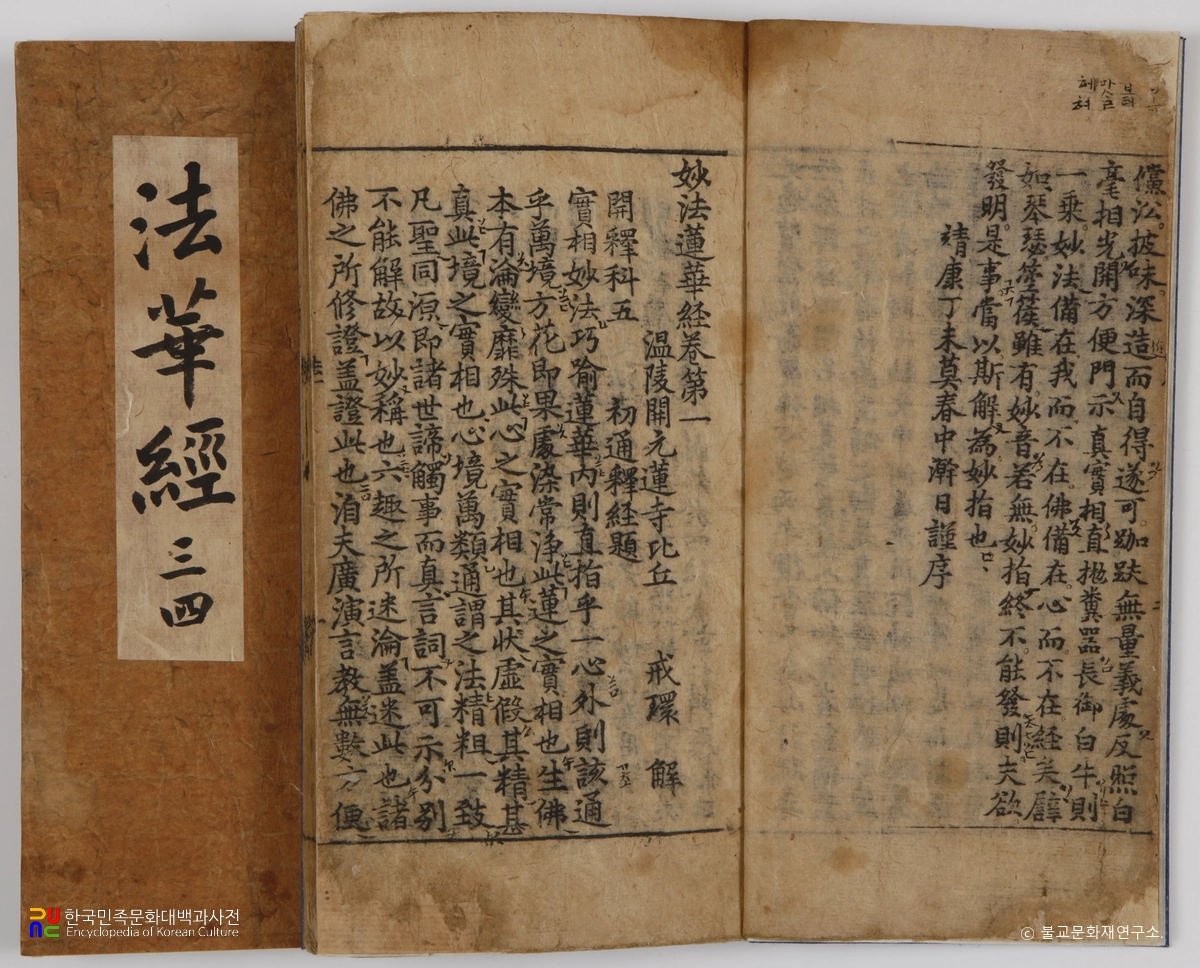 法華經 三四
儻⺀披味深造而自得遂可跏趺無量義處反照白
毫相光開方便門示真實相直抛糞器長御白牛則
一乘妙法備在我而不在佛備在心而不在經矣譬
如琴瑟箜篌雖有妙音若無妙指終不能發則夫欲
發明是事當以斯解為妙指也
靖康丁未莫春中澣日謹序
妙法蓮華経卷第一
温陵開元蓮寺比丘 戒環 解
開釋科五 初通釋経題
實相妙法巧喻蓮華内則直指乎一心外則該通
乎萬境方花即果處染常淨此蓮之實相也生佛
本有淪變靡殊此心之實相也其狀虛假其精甚
真此境之實相也心境萬類通謂之法精粗一致
凡聖同源即諸世諦觸事而真言詞不可示分别
不能解故以妙稱也六趣之所迷淪盖迷此也諸
佛之所修證盖證此也洎夫廣演言教無數方便
한국민족문화대백과사전
Encyclopedia of Korean Culture
© 불교문화재연구소.